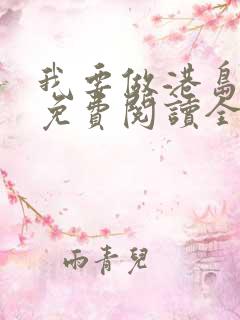 我要做港島
免費閱讀全
雨青兒